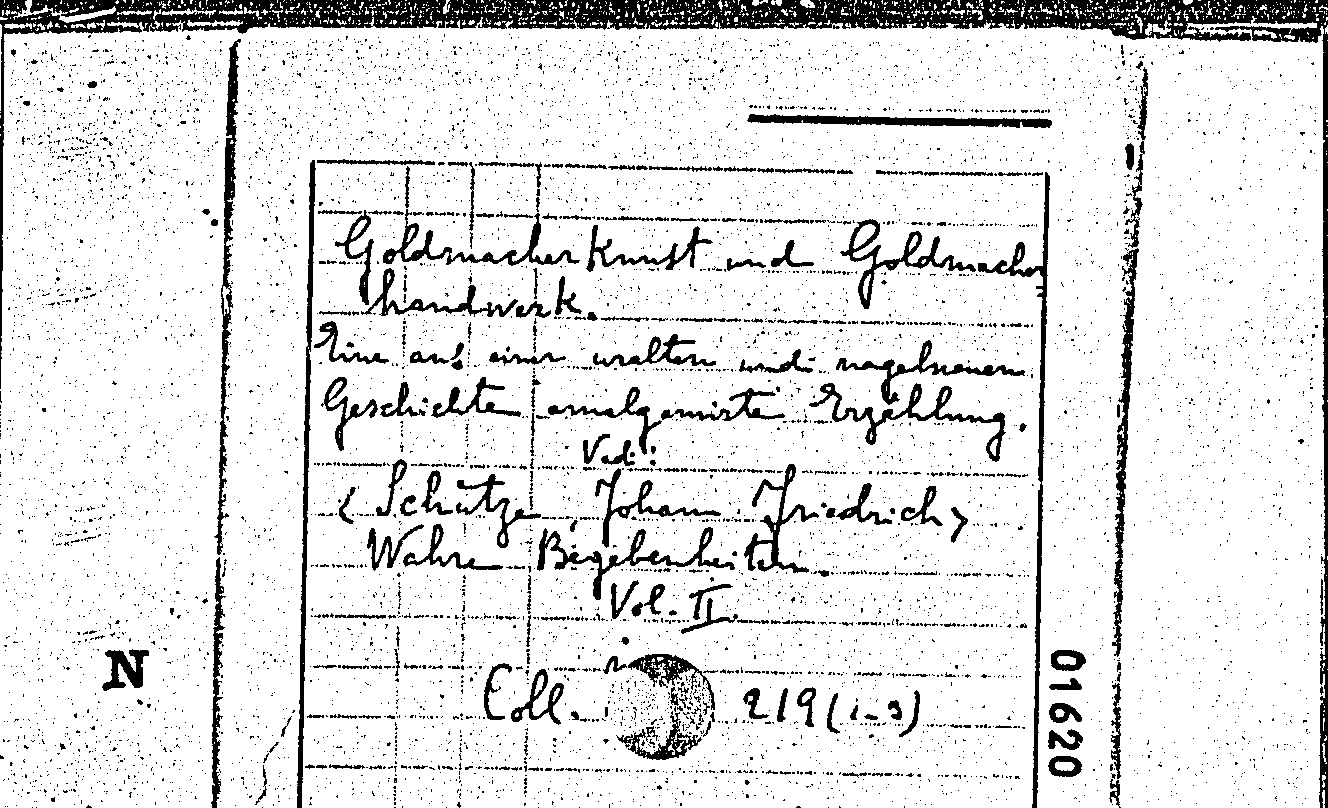 Goldmacherkunst und Goldmacher
handwerk.
Eine aus einer uralten und nagelneuen
Geschichte amalgamirte Erzählung.
Ved:
< Schütze, Johann Friedrich>
Wahre Begebenheiten.
Vol. II.
Coll. 219 (1-3)
N
01620